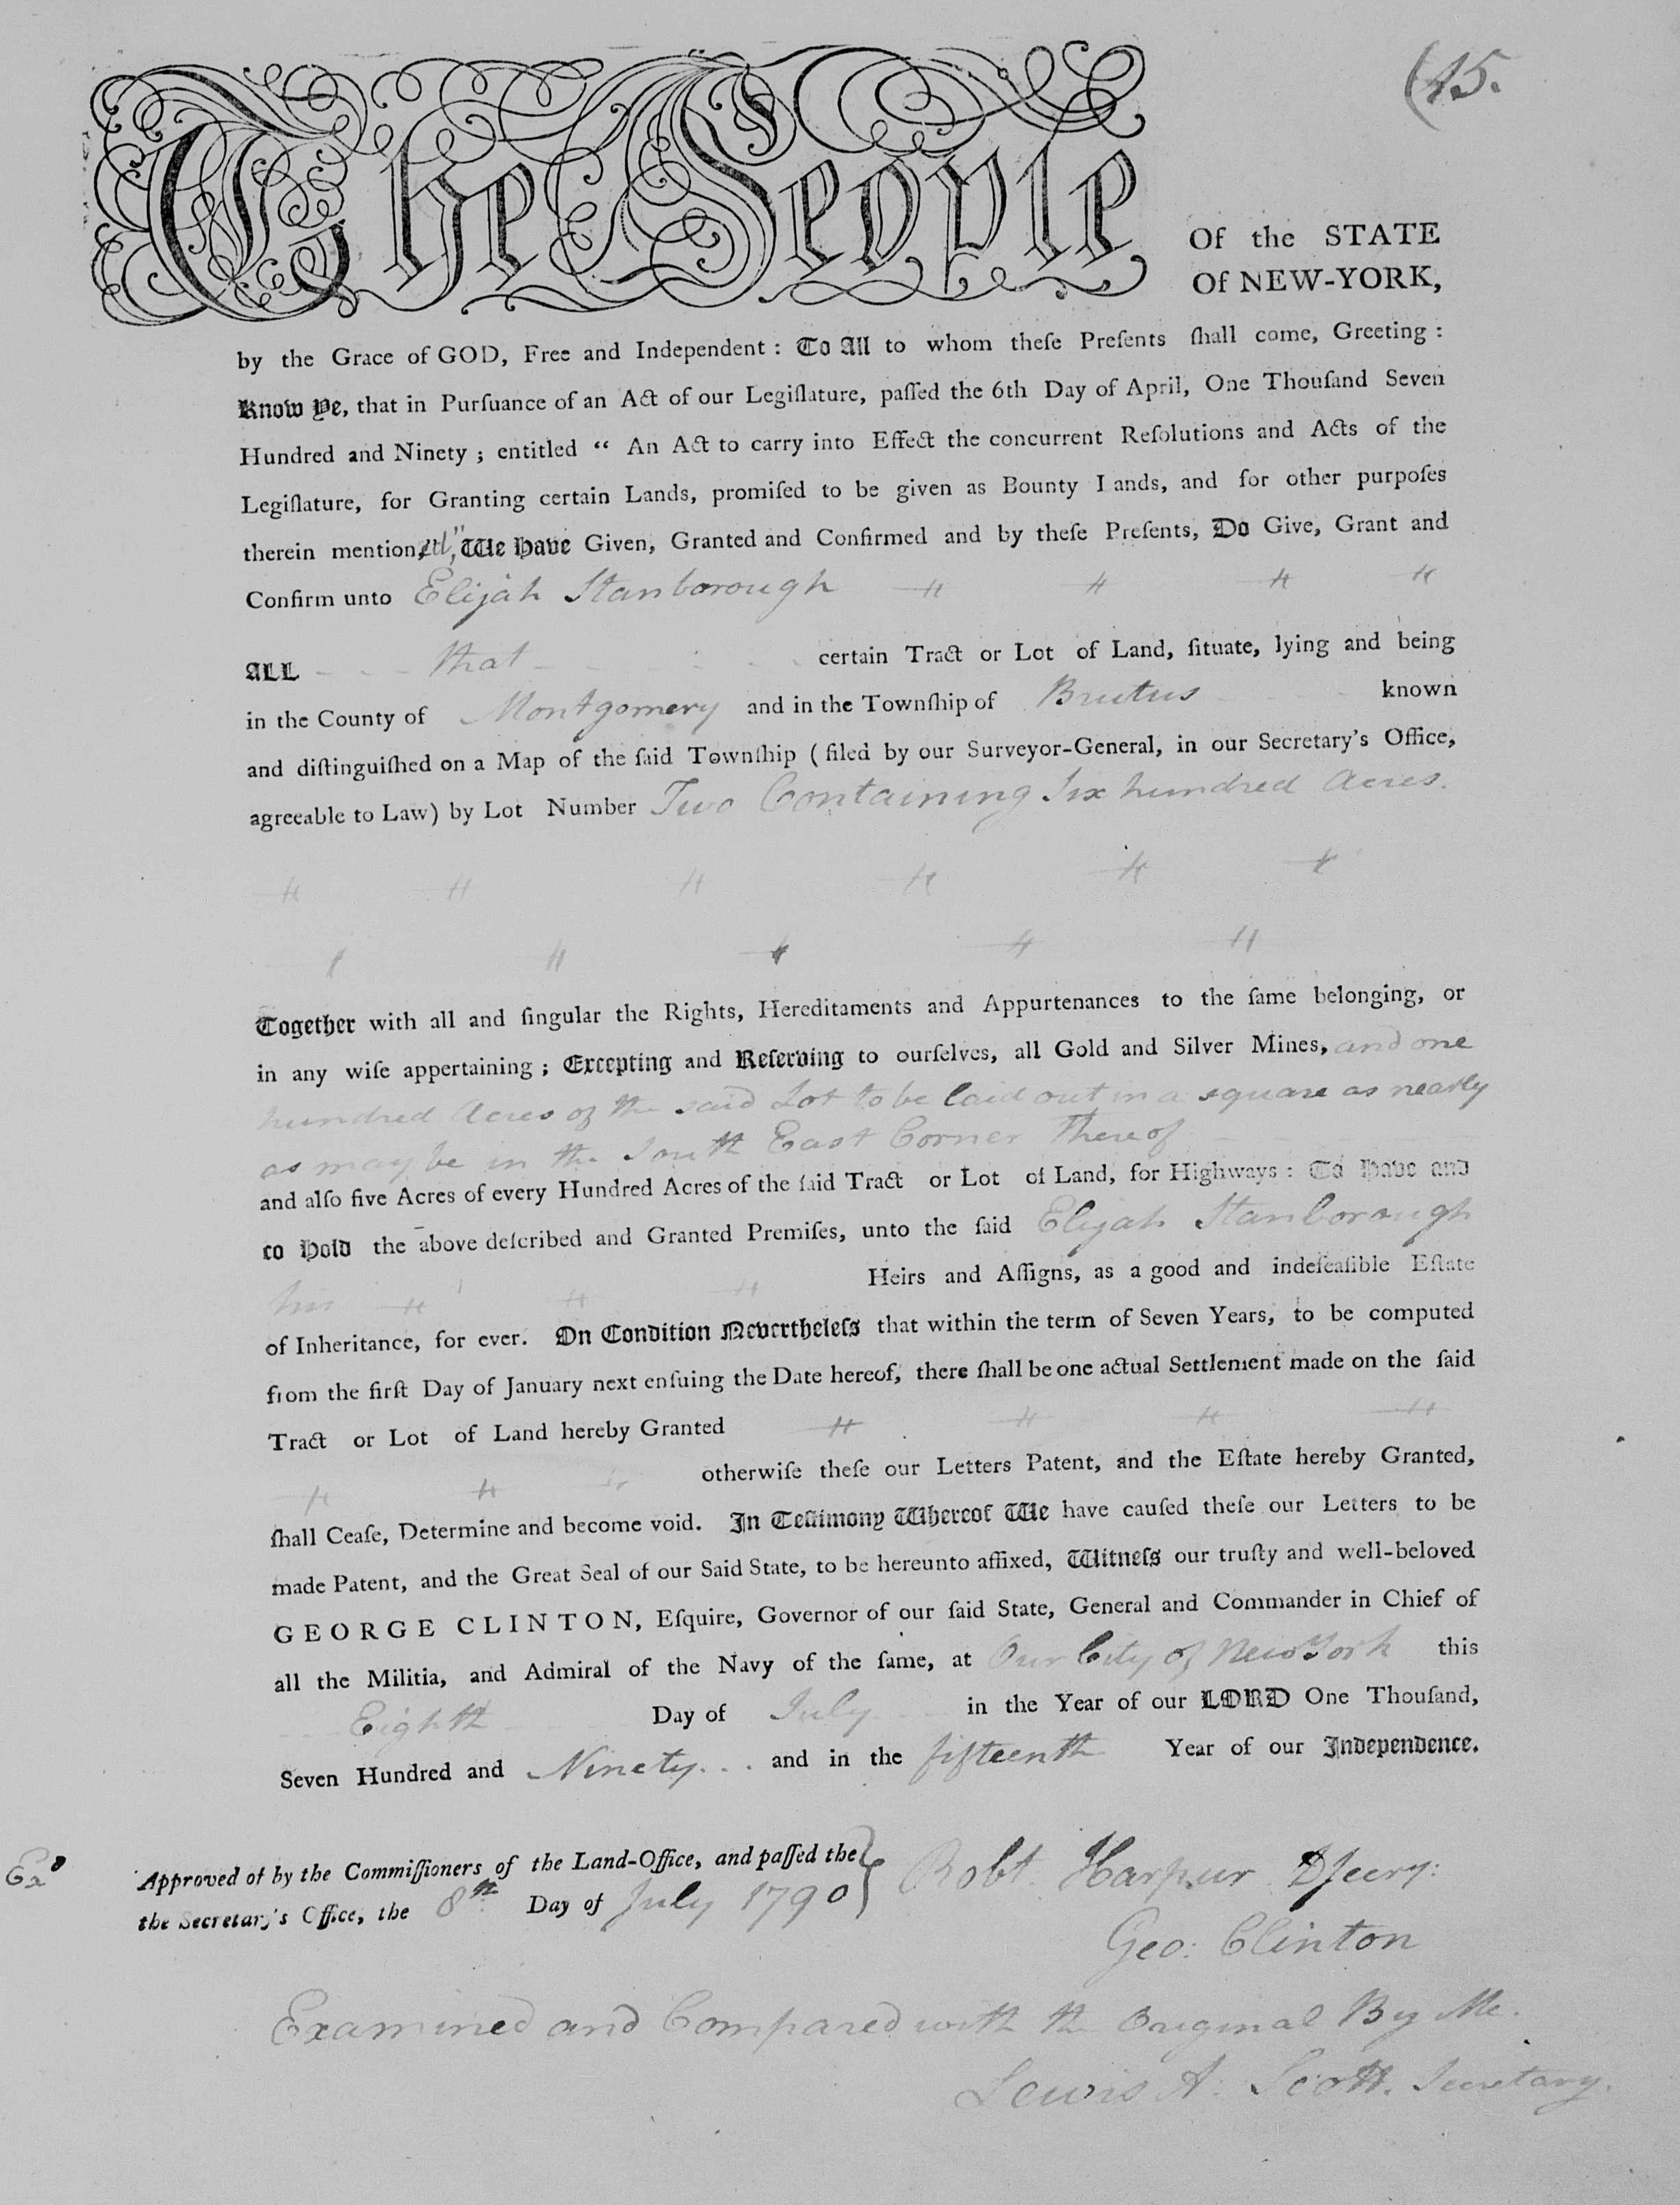 (15.
The People
Of the STATE
Of NEW-YORK,
by the Grace of GOD, Free and Independent : To All to whom theſe Preſents ſhall come, Greeting :
Know Ye, that in Purſuance of an Act of our Legiſlature, paſſed the 6th Day of April, One Thouſand Seven
Hundred and Ninety ; entitled “ An Act to carry into Effect the concurrent Reſolutions and Acts of the
Legiſlature, for Granting certain Lands, promiſed to be given as Bounty Lands, and for other purpoſes
therein mentioned," We Have Given, Granted and Confirmed and by theſe Preſents, Do Give, Grant and
Confirm unto Elijah Stanborough
ALL that certain Tract or Lot of Land, ſituate, lying and being
in the County of Montgomery and in the Townſhip of Brutus known
and diſtinguiſhed on a Map of the ſaid Townſhip ( filed by our Surveyor-General, in our Secretary's Office,
agreeable to Law) by Lot Number Two Containing Six hundred Acres.
Together with all and ſingular the Rights, Hereditaments and Appurtenances to the ſame belonging, or
in any wiſe appertaining ; Excepting and Reſerving to ourſelves, all Gold and Silver Mines, and one
hundred Acres of the said Lot to be laid out in a square as nearly
as may be in the South East Corner Thereof
and alſo five Acres of every Hundred Acres of the ſaid Tract or Lot of Land, for Highways : To Have and
to Hold the above deſcribed and Granted Premiſes, unto the ſaid Elijah Stanborough
his Heirs and Aſſigns, as a good and indefeaſible Eſtate
of Inheritance, for ever. On Condition Nevertheleſs that within the term of Seven Years, to be computed
from the firſt Day of January next enſuing the Date hereof, there ſhall be one actual Settlement made on the ſaid
Tract or Lot of Land hereby Granted
otherwiſe theſe our Letters Patent, and the Eſtate hereby Granted,
ſhall Ceaſe, Determine and become void. In Teſtimony Whereof We have cauſed theſe our Letters to be
made Patent, and the Great Seal of our Said State, to be hereunto affixed, Witneſs our truſty and well-beloved
GEORGE CLINTON, Eſquire, Governor of our ſaid State, General and Commander in Chief of
all the Militia, and Admiral of the Navy of the ſame, at Our City of New York this
Eighth Day of July in the Year of our LORD One Thouſand,
Seven Hundred and Ninety... and in the fifteenth Year of our Independence.
Exd Approved of by the Commiſſioners of the Land-Office, and paſſed the } Robt. Harpur D Secry:
the Secretary's Office, the 8th Day of July 1790
Geo: Clinton
Examined and Compared with the Original By Me.
Lewis A: Scott. Secretary.